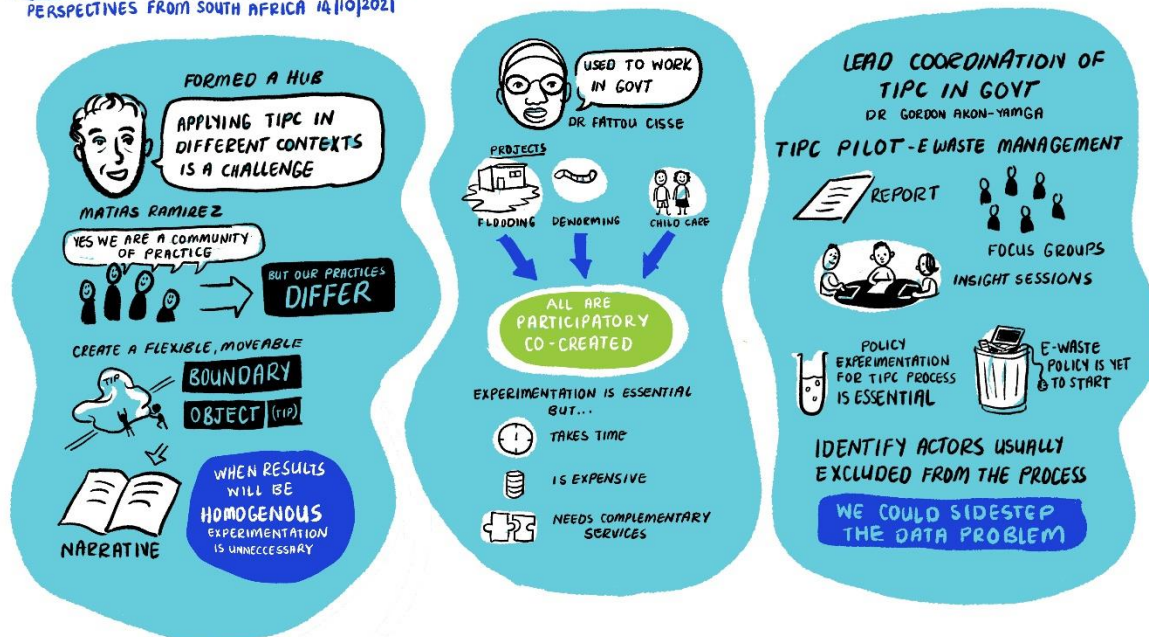 PERSPECTIVES FROM SOUTH AFRICA 14/10/2021
FORMED A HUB
APPLYING TIPC IN
DIFFERENT CONTEXTS
IS A CHALLENGE
MATIAS RAMIREZ
YES WE ARE A COMMUNITY
OF PRACTICE
BUT OUR PRACTICES
DIFFER
CREATE A FLEXIBLE, MOVEABLE
TIP
BOUNDARY
OBJECT (TIP)
NARRATIVE
WHEN RESULTS
WILL BE
HOMOGENOUS
EXPERIMENTATION
IS UNNECCESSARY
USED TO WORK
IN GOVT
DR FATTOU CISSE
PROJECTS
FLOODING
DEWORMING
CHILD CARE
ALL ARE
PARTICIPATORY
CO-CREATED
EXPERIMENTATION IS ESSENTIAL
BUT...
TAKES TIME
IS EXPENSIVE
NEEDS COMPLEMENTARY
SERVICES
LEAD COORDINATION OF
TIPC IN GOVT
DR GORDON AKON-YAMGA
TIPC PILOT - E WASTE MANAGEMENT
REPORT
FOCUS GROUPS
INSIGHT SESSIONS
POLICY
EXPERIMENTATION
FOR TIPC PROCESS
IS ESSENTIAL
E-WASTE
POLICY IS YET
TO START
IDENTIFY ACTORS USUALLY
EXCLUDED FROM THE PROCESS
WE COULD SIDESTEP
THE DATA PROBLEM